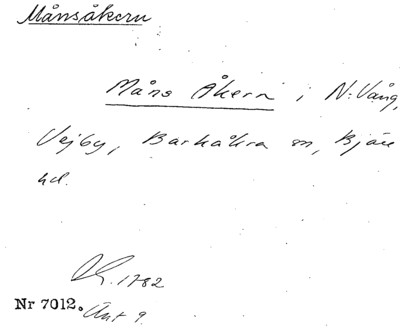 Månsåkern
Måns Åkern i N: Vång,
Vejby, Barkåkra sn, Bjäre
hd.
1782
Nr 7012. Akt 9.